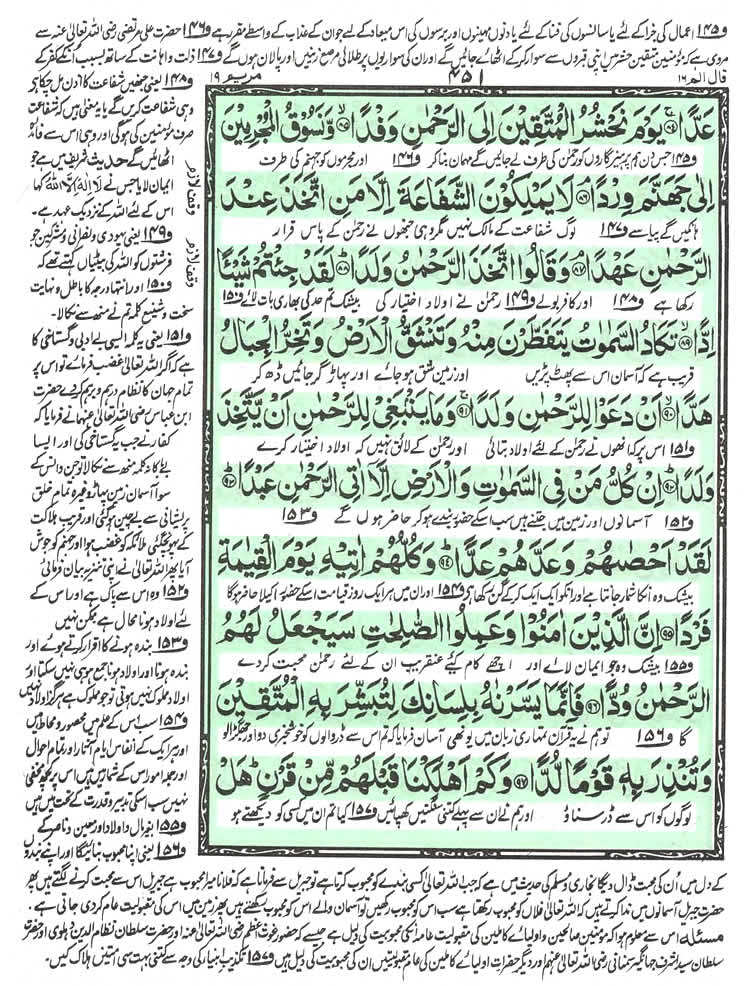 و۱۴۵ اعمال کی جزا کے لئے یا سانسوں کی فنا کے لئے یا دنوں مہینوں اور برسوں کی اس میعاد کے لیے جو ان کے عذاب کے واسطے مقرر ہے و۱۴۶ حضرت علی مرتضیٰ رضی اللہ تعالیٰ عنہ سے
مروی ہے کہ مؤمنین متقین حشر میں اپنی قبروں سے سوار کرکے اٹھائے جائیں گے اور ان کی سواریوں پر طلائی مرصع زینیں اور پالان ہوں گے و۱۴۷ ذلت و اہانت کے ساتھ بسبب انکے کفر کے
قال الم ۱۶
۴۵۱
مریم ۱۹
عَدًّا ﴿۸۴﴾ یَوْمَ نَحْشُرُ الْمُتَّقِیْنَ اِلَی الرَّحْمٰنِ وَفْدًا ﴿۸۵﴾ وَّنَسُوْقُ الْمُجْرِمِیْنَ
و۱۴۵ جس دن ہم پرہیزگاروں کو رحمٰن کی طرف لے جائیں گے مہمان بنا کر و۱۴۶ اور مجرموں کو جہنم کی طرف
اِلٰی جَهَنَّمَ وِرْدًا ﴿۸۶﴾ لَا یَمْلِكُوْنَ الشَّفَاعَةَ اِلَّا مَنِ اتَّخَذَ عِنْدَ
ہانکیں گے پیاسے و۱۴۷ لوگ شفاعت کے مالک نہیں مگر وہی جنھوں نے رحمٰن کے پاس قرار
الرَّحْمٰنِ عَهْدًا ﴿۸۷﴾ وَقَالُوا اتَّخَذَ الرَّحْمٰنُ وَلَدًا ﴿۸۸﴾ لَقَدْ جِئْتُمْ شَیْئًا
رکھا ہے و۱۴۸ اور کافر بولے رحمٰن نے اولاد اختیار کی و۱۴۹ بیشک تم حد کی بھاری بات لائے و۱۵۰
اِدًّا ﴿۸۹﴾ تَكَادُ السَّمٰوٰتُ یَتَفَطَّرْنَ مِنْهُ وَتَنْشَقُّ الْاَرْضُ وَتَخِرُّ الْجِبَالُ
قریب ہے کہ آسمان اس سے پھٹ پڑیں اور زمین شق ہو جائے اور پہاڑ گر جائیں ڈھ کر
هَدًّا ﴿۹۰﴾ اَنْ دَعَوْا لِلرَّحْمٰنِ وَلَدًا ﴿۹۱﴾ وَمَا یَنْۢبَغِیْ لِلرَّحْمٰنِ اَنْ یَّتَّخِذَ
و۱۵۱ اس پر کہ انھوں نے رحمٰن کے لئے اولاد بتائی اور رحمٰن کے لائق نہیں کہ اولاد اختیار کرے
وَلَدًا ﴿۹۲﴾ اِنْ كُلُّ مَنْ فِی السَّمٰوٰتِ وَالْاَرْضِ اِلَّاۤ اٰتِی الرَّحْمٰنِ عَبْدًا ﴿۹۳﴾
و۱۵۲ آسمانوں اور زمین میں جتنے ہیں سب اسکے حضور بندے ہو کر حاضر ہوں گے و۱۵۳
لَقَدْ اَحْصٰىهُمْ وَعَدَّهُمْ عَدًّا ﴿۹۴﴾ وَكُلُّهُمْ اٰتِیْهِ یَوْمَ الْقِیٰمَةِ
بیشک وہ انکا شمار جانتا ہے اور انکو ایک ایک کرکے گن رکھا ہے و۱۵۴ اور ان میں ہر ایک روز قیامت اسکے حضور اکیلا حاضر ہوگا
فَرْدًا ﴿۹۵﴾ اِنَّ الَّذِیْنَ اٰمَنُوْا وَعَمِلُوا الصّٰلِحٰتِ سَیَجْعَلُ لَهُمُ
و۱۵۵ بیشک وہ جو ایمان لائے اور اچھے کام کیے عنقریب ان کے لئے رحمٰن محبت کردے
الرَّحْمٰنُ وُدًّا ﴿۹۶﴾ فَاِنَّمَا یَسَّرْنٰهُ بِلِسَانِكَ لِتُبَشِّرَ بِهِ الْمُتَّقِیْنَ
گا و۱۵۶ تو ہم نے یہ قرآن تمہاری زبان میں یونہی آسان فرمایا کہ تم اس سے ڈر والوں کو خوشخبری دو اور جھگڑالو
وَتُنْذِرَ بِهٖ قَوْمًا لُّدًّا ﴿۹۷﴾ وَكَمْ اَهْلَكْنَا قَبْلَهُمْ مِّنْ قَرْنٍ هَلْ
لوگوں کو اس سے ڈر سناؤ اور ہم نے ان سے پہلے کتنی سنگتیں کھپائیں و۱۵۷ کیا تم ان میں کسی کو دیکھتے ہو
وقف لازم
وقف لازم
و۱۴۸ یعنی جنھیں شفاعت کا اذن مل چکا ہے
وہی شفاعت کریں گے یا یہ معنی ہیں کہ شفاعت
صرف مؤمنین کی ہوگی اور وہی اس سے فائدہ
اٹھائیں گے حدیث شریف میں ہے جو
ایمان لایا جس نے لا الٰہ الا اللہ کہا
اس کے لئے اللہ کے نزدیک عہد ہے۔
و۱۴۹ یعنی یہودی و نصرانی و مشرکین جو
فرشتوں کو اللہ کی بیٹیاں کہتے تھے کہ
و۱۵۰ اور انتہا درجہ کا باطل و نہایت
سخت و شنیع کلمہ تم نے منھ سے نکالا۔
و۱۵۱ یعنی یہ کلمہ ایسی بے ادبی و گستاخی کا
ہے کہ اگر اللہ تعالیٰ غضب فرمائے تو اس پر
تمام جہان کا نظام درہم و برہم کردے حضرت
ابن عباس رضی اللہ تعالیٰ عنہما نے فرمایا کہ
کفار نے جب یہ گستاخی کی اور ایسا
بے باکانہ کلمہ منھ سے نکالا تو جن و انس کے
سوا آسمان زمین پہاڑ وغیرہ تمام خلق
پریشانی سے بے چین ہو گئی اور قریب ہلاکت
کے پہونچ گئی ملائکہ کو غضب ہوا اور جہنم کو جوش
آیا پھر اللہ تعالیٰ نے اپنی تنزیہ بیان فرمائی
و۱۵۲ وہ اس سے پاک ہے اور اس کے
لئے اولاد ہونا محال ہے ممکن نہیں
و۱۵۳ بندہ ہونے کا اقرار کرتے ہوئے اور
بندہ ہونا اور اولاد ہونا جمع ہو ہی نہیں سکتا اور
اولاد مملوک نہیں ہوتی تو جو مملوک ہے ہرگز اولاد نہیں
و۱۵۴ سب اس کے علم میں محصور و محاط ہیں
اور ہر ایک کے انفاس ایام آثار اور تمام احوال
اور جملہ امور اس کے شمار میں ہیں اس پر کچھ مخفی
نہیں سب اسکی تدبیر و قدرت کے تحت میں ہیں
و۱۵۵ بغیر مال و اولاد اور معین و ناصر کے
و۱۵۶ یعنی اپنا محبوب بنائیگا اور اپنے بندوں
کے دل میں اُن کی محبت ڈال دیگا بخاری و مسلم کی حدیث میں ہے کہ جب اللہ تعالیٰ کسی بندے کو محبوب کرتا ہے تو جبریل سے فرماتا ہے کہ فلانا میرا محبوب ہے جبریل اس سے محبت کرنے لگتے ہیں پھر
حضرت جبریل آسمانوں میں ندا کرتے ہیں کہ اللہ تعالیٰ فلاں کو محبوب رکھتا ہے سب اس کو محبوب رکھیں تو آسمان والے اس کو محبوب رکھتے ہیں پھر زمین میں اس کی مقبولیت عام کردی جاتی ہے۔
مسئلہ اس سے معلوم ہوا کہ مؤمنین صالحین و اولیائے کاملین کی مقبولیت عامہ انکی محبوبیت کی دلیل ہے جیسے کہ حضور غوث اعظم رضی اللہ تعالیٰ عنہ اور حضرت سلطان نظام الدین دہلوی اور حضرت
سلطان سید اشرف جہانگیر سمنانی رضی اللہ تعالیٰ عنہم اور دیگر حضرات اولیائے کاملین کی عام مقبولیتیں ان کی محبوبیت کی دلیل ہیں و۱۵۷ تکذیب انبیاء کی وجہ سے کتنی بہت سی امتیں ہلاک کیں۔